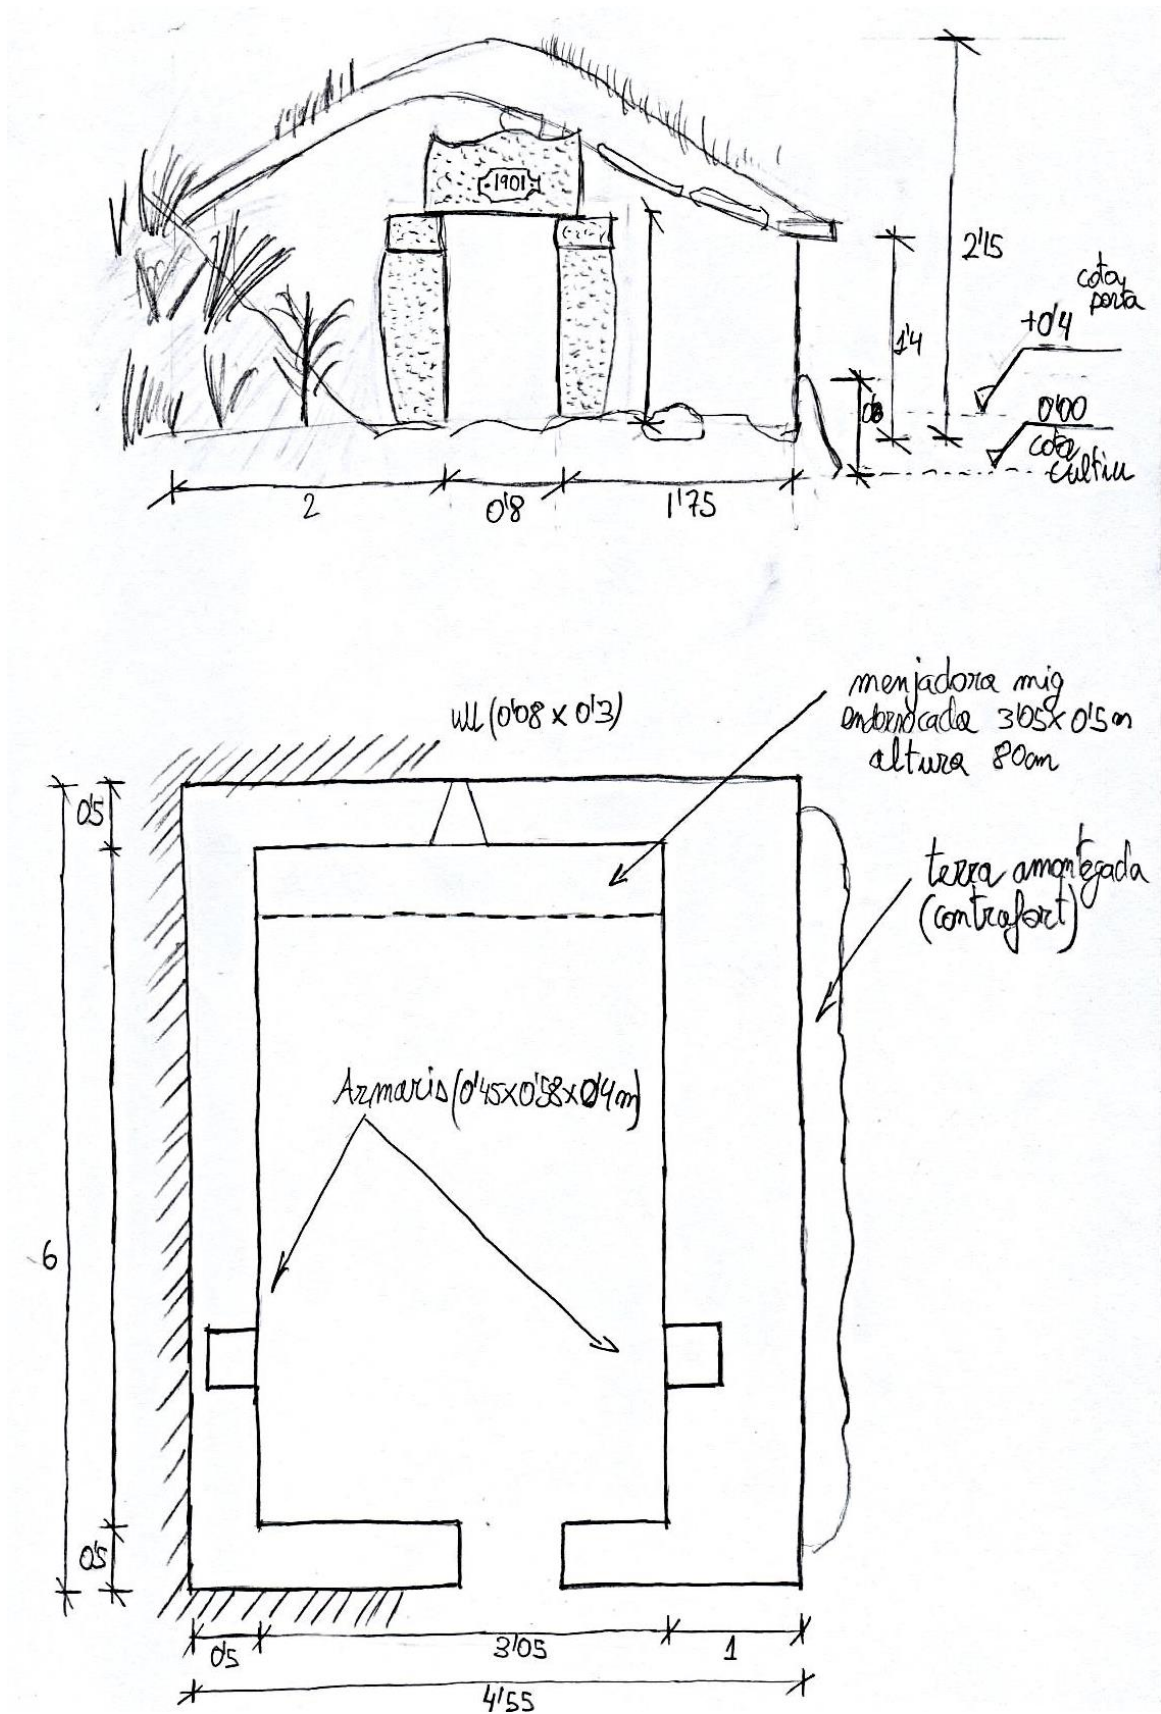 1901
2'15
cota
porta
+0'4
1'4
0'00
cota
cultiu
2
0'8
1'75
ull (0'08 x 0'3)
menjadora mig
3'05 x 0'5m
altura 80cm
0'5
terra amontegada
(contrafort)
Armaris (0'45x0'58x0'4m)
6
0'5
0'5
3'05
1
4'55